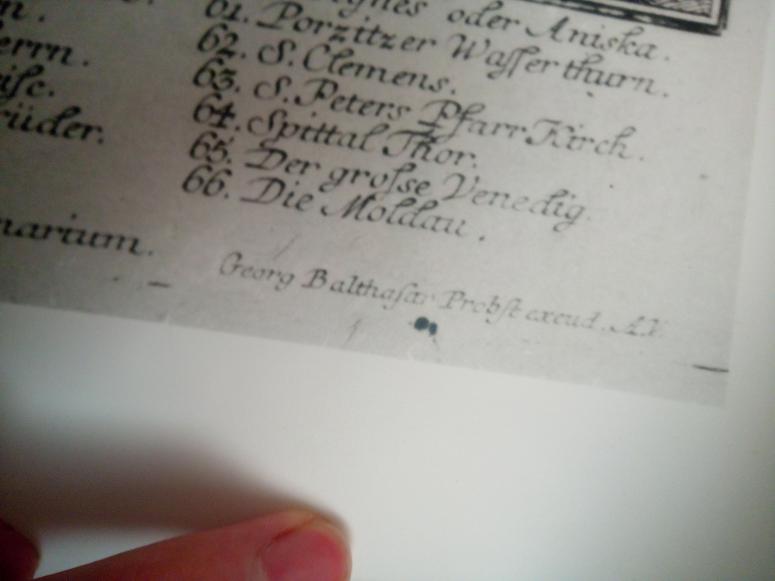 oder Aniska.
61. Porzitzer Waſſerthurn.
62. S. Clemens.
63. S. Peters Pfarr Kirch.
64. Spittal Thor.
65. Der groſse Venedig.
66. Die Moldau.
Georg Balthaſar Probſt excud. A.V.